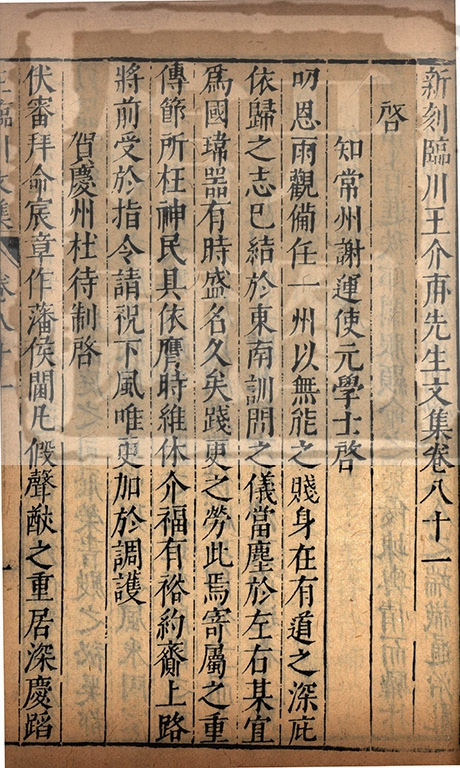 新刻臨川王介甫先生文集卷八十一
啓
知常州謝運使元學士啓
叨恩雨觀備任一州以無能之賤身在有道之深庇
依歸之志巳結於東南訓問之儀當塵於左右某宜
爲國瑋器有時盛名久矣踐更之勞此焉寄屬之重
傳節所柱神民具依膺時維休介福有裕約齎上路
將前受於指令請祝下風唯更加於調護
賀慶州杜待制啓
伏審拜命宸章作藩侯閫凡假聲猷之重居深慶蹈
王臨川文集 卷八十一 一